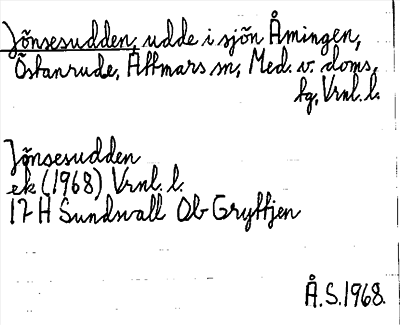 Jönsesudden, udde i sjön Åmingen,
Östanrude, Attmars sn, Med. v. doms.
tg, Vrnl. l.
Jönsesudden
ek (1968) Vrnl. l.
17 H Sundsvall Ob Gryttjen
Å.S.1968.